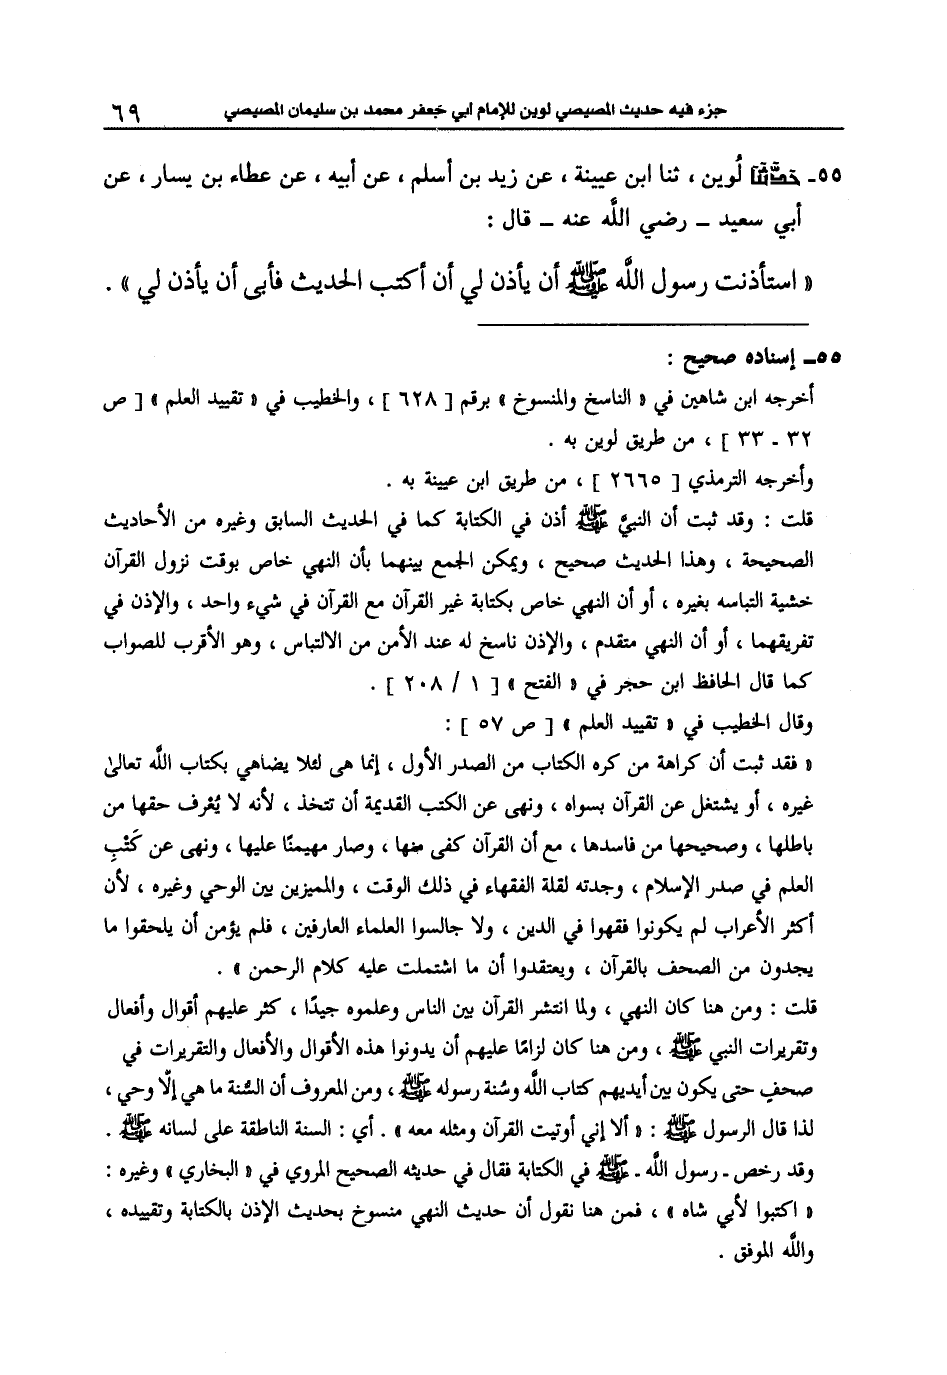 جزء فيه حديث المصيصي لوين للإمام أبي جعفر محمد بن سليمان المصيصي ٦٩
٥٥ـ حدثنا لُوين ، ثنا ابن عيينة ، عن زيد بن أسلم ، عن أبيه ، عن عطاء بن يسار ، عن
أبي سعيد ـ رضي اللَّه عنه ـ قال :
« استأذنت رسول اللَّه ﷺ أن يأذن لي أن أكتب الحديث فأبى أن يأذن لي » .
٥٥ـ إسناده صحيح :
أخرجه ابن شاهين في « الناسخ والمنسوخ » برقم [ ٦٢٨ ] ، والخطيب في « تقييد العلم » [ ص
٣٢ ـ ٣٣ ] ، من طريق لوين به .
وأخرجه الترمذي [ ٢٦٦٥ ] ، من طريق ابن عيينة به .
قلت : وقد ثبت أن النبيَّ ﷺ أذن في الكتابة كما في الحديث السابق وغيره من الأحاديث
الصحيحة ، وهذا الحديث صحيح ، ويمكن الجمع بينهما بأن النهي خاص بوقت نزول القرآن
خشية التباسه بغيره ، أو أن النهي خاص بكتابة غير القرآن مع القرآن في شيء واحد ، والإذن في
تفريقهما ، أو أن النهي متقدم ، والإذن ناسخ له عند الأمن من الالتباس ، وهو الأقرب للصواب
كما قال الحافظ ابن حجر في « الفتح » [ ١ / ٢٠٨ ] .
وقال الخطيب في « تقييد العلم » [ ص ٥٧ ] :
« فقد ثبت أن كراهة من كره الكتاب من الصدر الأول ، إنما هى لئلا يضاهي بكتاب اللَّه تعالىٰ
غيره ، أو يشتغل عن القرآن بسواه ، ونهى عن الكتب القديمة أن تتخذ ، لأنه لا يُعْرف حقها من
باطلها ، وصحيحها من فاسدها ، مع أن القرآن كفى منها ، وصار مهيمنًا عليها ، ونهى عن كَتْبِ
العلم في صدر الإسلام ، وجدته لقلة الفقهاء في ذلك الوقت ، والمميزين بين الوحي وغيره ، لأن
أكثر الأعراب لم يكونوا فقهوا في الدين ، ولا جالسوا العلماء العارفين ، فلم يؤمن أن يلحقوا ما
يجدون من الصحف بالقرآن ، ويعتقدوا أن ما اشتملت عليه كلام الرحمن » .
قلت : ومن هنا كان النهي ، ولما انتشر القرآن بين الناس وعلموه جيدًا ، كثر عليهم أقوال وأفعال
وتقريرات النبي ﷺ ، ومن هنا كان لزامًا عليهم أن يدونوا هذه الأقوال والأفعال والتقريرات في
صحفٍ حتى يكون بين أيديهم كتاب اللَّه وسُنة رسوله ﷺ ، ومن المعروف أن السُّنة ما هي إلَّا وحي ،
لذا قال الرسول ﷺ : « ألا إني أوتيت القرآن ومثله معه » . أي : السنة الناطقة على لسانه ﷺ .
وقد رخص ـ رسول اللَّه ـ ﷺ في الكتابة فقال في حديثه الصحيح المروي في « البخاري » وغيره :
« اكتبوا لأبي شاه » ، فمن هنا نقول أن حديث النهي منسوخ بحديث الإذن بالكتابة وتقييده ،
واللَّه الموفق .